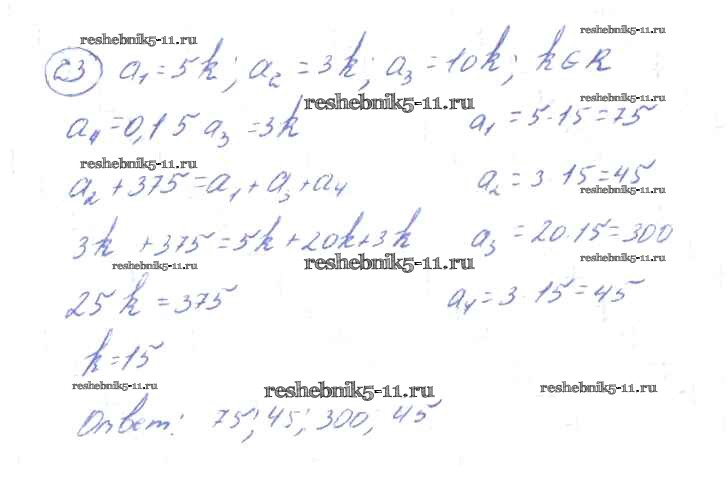 reshebnik5-11.ru reshebnik5-11.ru
23 a₁ = 5k; a₂ = 3k; a₃ = 10k; k∈R
reshebnik5-11.ru reshebnik5-11.ru
a₄ = 0,15 a₃ = 3k a₁ = 5·15 = 75
reshebnik5-11.ru
a₂ + 375 = a₁ + a₃ + a₄ a₂ = 3·15 = 45
reshebnik5-11.ru
3k + 375 = 5k + 20k + 3k a₃ = 20·15 = 300
reshebnik5-11.ru reshebnik5-11.ru reshebnik5-11.ru
25k = 375 a₄ = 3·15 = 45
reshebnik5-11.ru
k = 15
reshebnik5-11.ru reshebnik5-11.ru reshebnik5-11.ru
Ответ: 75; 45; 300; 45